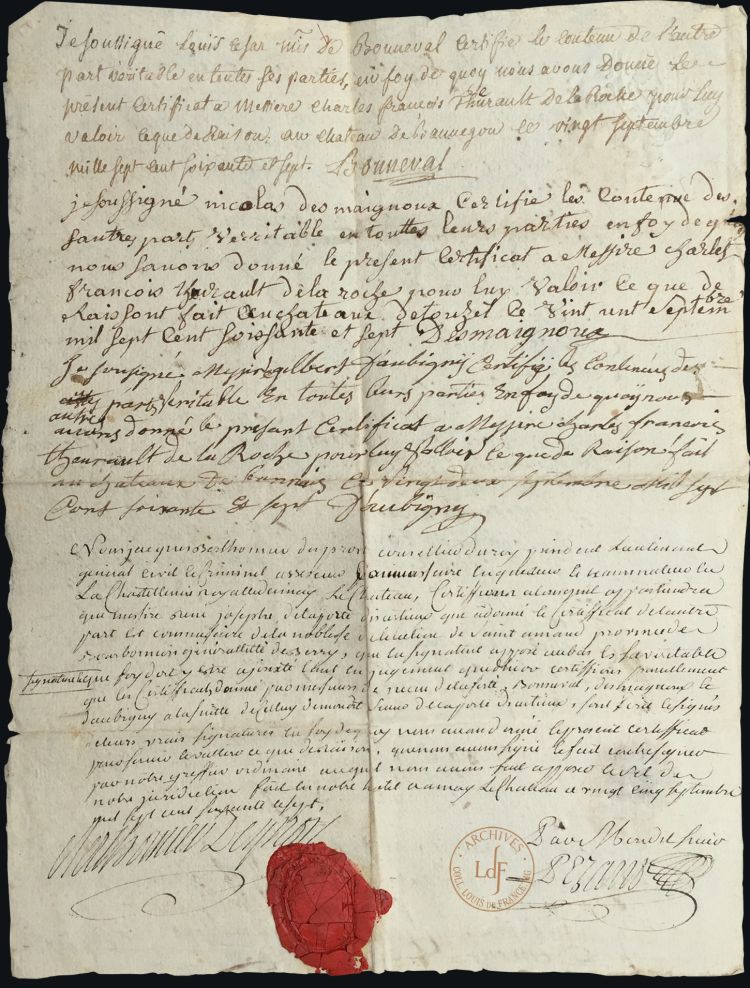 Je soussigné Louis Cesar m^is De Bonneval Certifie le Contenu de l'autre
part véritable en toutes ses parties, en foy de quoy nous avons Donné Le
présent Certificat a Messire Charles françois Thurault De la Roche pour luy
valoir ce que de Raison, au Chateau De Bannegon le vingt septembre
mille sept cent soixante et sept. Bonneval
je soussigné nicolas desmaignoux Certifie les Contenue des
autres part, verritable en touttes leurs parties en foy de quoy
nous l'avons donné le present Certificat a Messire charles
francois thurault de la roche pour luy valoir Ce que de
Raissont fait au chateaux de touzel Ce vint unt septembre
mil sept Cent soissante et sept Desmaignoux
Je sousigné Messire gilbert D'aubigny Certifie les Contenues des
autre parts veritable En toutes leurs parties En foy de quoy nous
avons donné le présant Certificat a Messire charles francois
thaurault de la Roche pour luy valloir ce que de Raison fait
au chateaux De bannais Ce vingt deux septembre mil sept
Cent soixante Et sept D'aubigny
conseiller du roy president Lieutenant
general civil et Criminel
La Chastellenie royalle dainay Le Chateau, Certiffions a tous qu'il appartiendra
que messire rené joseph delaporte que a donné le Certificat de lautre
part Est commissaire de la noblesse de lelection de Saint amand province de
Bourbonnois généralitté de Berry, que la signature apposé au bas Est la véritable
signature et que foy doit y etre ajouté tant en jugement que dehors certiffions pareillement
que les Certificats donné par messieurs Bonneval, desmagnoux et
daubigny a la suitte de celuy
leurs vrais signatures En foy de quoy nous avons donné le present certificat
pour servir et valloir ce que de raison, que nous avons signé et fait contresigner
par notre greffier ordinaire auquel nous avons fait apposer le scel de
notre juridiction fait en notre hotel a ainay Le Chateau ce vingt cinq septembre
mil sept cent soixante et sept,
Par Mondit sieur
ARCHIVES
LdF
COLL. LOUIS DE FRANCE MG